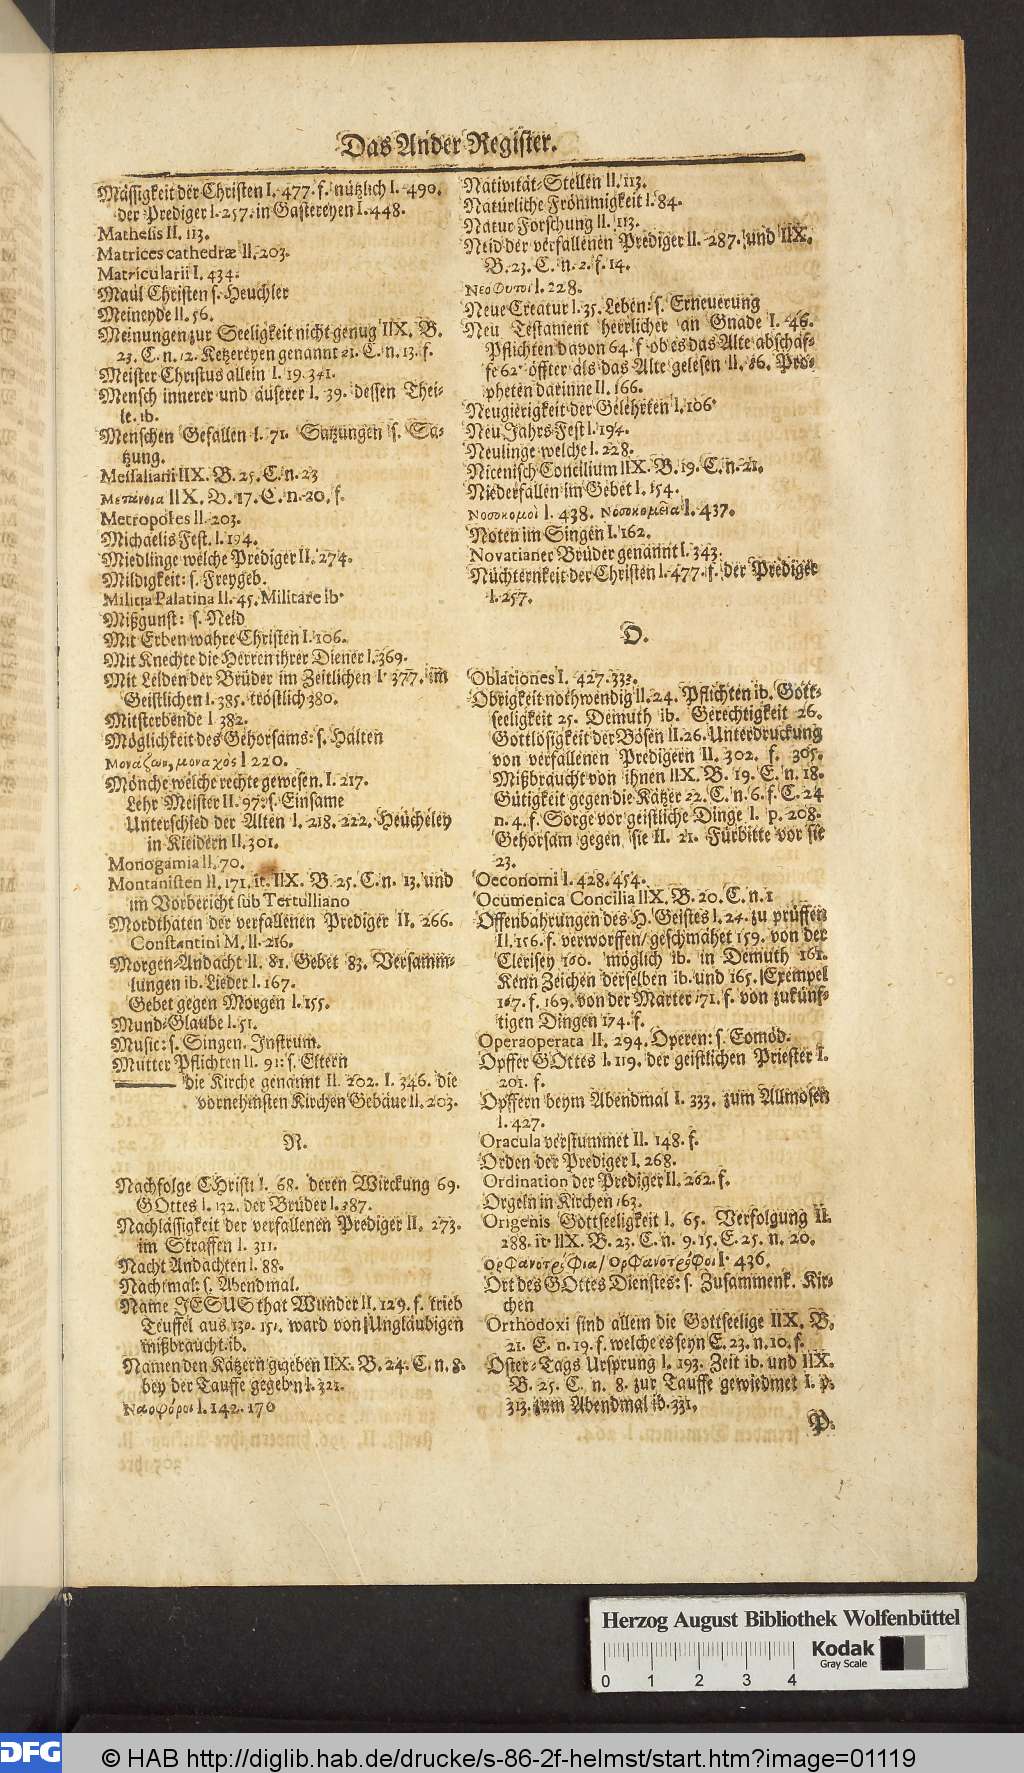 Das Ander Register.
Mässigkeit der Christen I. 477. f. nützlich I. 490.
der Prediger I. 257. in Gastereyen I. 448.
Mathesis II. 113.
Matrices cathedræ II. 203.
Matricularii I. 434.
Maul Christen s. Heuchler
Meineyde II. 56.
Meinungen zur Seeligkeit nicht genug IIX. B.
23. C. n. 12. Ketzereyen genannt 21. C. n. 13. f.
Meister Christus allein I. 19. 341.
Mensch innerer und äuserer I. 39. dessen Thei-
le. ib.
Menschen Gefallen I. 71. Satzungen s. Sa-
tzung.
Messaliani IIX. B. 25. C. n. 23
Μετάνοια IIX. B. 17. C. n. 20. f.
Metropoles II. 203.
Michaelis Fest. I. 194.
Miedlinge welche Prediger II. 274.
Mildigkeit: s. Freygeb.
Militia Palatina II. 45. Militare ib.
Mißgunst: s. Neid
Mit Erben wahre Christen I. 106.
Mit Knechte die Herren ihrer Diener I. 369.
Mit Leiden der Brüder im Zeitlichen I. 377. im
Geistlichen I. 385. tröstlich 380.
Mitsterbende I 382.
Möglichkeit des Gehorsams: s. Halten
Μονάζων, μοναχος I 220.
Mönche welche rechte gewesen. I. 217.
Lehr Meister II. 97. s. Einsame
Unterschied der Alten I. 218. 222. Heucheley
in Kleidern II. 301.
Monogamia II. 70.
Montanisten II. 171. it. IIX. B. 25. C. n. 13. und
im Vorbericht sub Tertulliano
Mordthaten der verfallenen Prediger II. 266.
Constantini M. II. 216.
Morgen-Andacht II. 81. Gebet 83. Versamm-
lungen ib. Lieder I. 167.
Gebet gegen Morgen I. 155.
Mund-Glaube I. 51.
Music: s. Singen. Instrum.
Mutter Pflichten II. 91: s. Eltern
die Kirche genannt II. 202. I. 346. die
vornehmsten Kirchen Gebäue II. 203.
N.
Nachfolge CHristi I. 68. deren Wirckung 69.
GOttes I. 132. der Brüder I. 387.
Nachlässigkeit der verfallenen Prediger II. 273.
im Straffen I. 311.
Nacht Andachten I. 88.
Nachtmal: s. Abendmal.
Name JESUS that Wunder II. 129. f. trieb
Teuffel aus 130. 151. ward von Ungläubigen
mißbraucht ib.
Namen den Kätzern gegeben IIX. B. 24. C. n. 8.
bey der Tauffe gegeben I. 321.
Ναοφόροι I. 142. 170
Nativität-Stellen II. 113.
Natürliche Frömmigkeit I. 84.
Natur Forschung II. 113.
Neid der verfallenen Prediger II. 287. und IIX.
B. 23. C. n. 2. f. 14.
Νεόφυτοι I. 228.
Neue Creatur I. 35. Leben: s. Erneuerung
Neu Testament herrlicher an Gnade I. 46.
Pflichten davon 64. f. ob es das Alte abschaf-
fe 62. öffter als das Alte gelesen II. 86. Pro-
pheten darinne II. 166.
Neugierigkeit der Gelehrten I. 106
Neu Jahrs Fest I. 194.
Neulinge welche I. 228.
Nicenisch Concilium IIX. B. 19. C. n. 21.
Niederfallen im Gebet I. 154.
Νοσοκομοὶ I. 438. Νοσοκομεῖα I. 437.
Noten im Singen I. 162.
Novatianer Brüder genannt I. 343.
Nüchternkeit der Christen I. 477. f. der Prediger
I. 257.
O.
Oblationes I. 427. 333.
Obrigkeit nothwendig II. 24. Pflichten ib. Gott-
seeligkeit 25. Demuth ib. Gerechtigkeit 26.
Gottlosigkeit der Bösen II. 26. Unterdruckung
von verfallenen Predigern II. 302. f. 305.
Mißbraucht von ihnen IIX. B. 19. C. n. 18.
Gütigkeit gegen die Kätzer 22. C. n. 6. f. C. 24
n. 4. f. Sorge vor geistliche Dinge I. p. 208.
Gehorsam gegen sie II. 21. Fürbitte vor sie
23.
Oeconomi I. 428. 454.
Ocumenica Concilia IIX. B. 20. C. n. 1
Offenbahrungen des H. Geistes I. 24. zu prüffen
II. 156. f. verworffen/ geschmähet 159. von der
Clerisey 160. möglich ib. in Demuth 161.
Kenn Zeichen derselben ib. und 165. Exempel
167. f. 169. von der Marter 171. f. von zukünf-
tigen Dingen 174. f.
Opera operata II. 294. Operen: s. Comöd.
Opffer GOttes I. 119. der geistlichen Priester I.
201. f.
Opffern beym Abendmal I. 333. zum Allmosen
I. 427.
Oracula verstummet II. 148. f.
Orden der Prediger I. 268.
Ordination der Prediger II. 262. f.
Orgeln in Kirchen 163.
Origenis Gottseeligkeit I. 65. Verfolgung II.
288. it IIX. B. 23. C. n. 9. 15. C. 25. n. 20.
Ορφανοτρόφια/ Ορφανοτρόφοι I. 436.
Ort des GOttes Dienstes: s. Zusammenk. Kir-
chen
Orthodoxi sind allein die Gottseelige IIX. B.
21. C. n. 19. f. welche es seyn C. 23. n. 10. f.
Oster-Tags Ursprung I. 193. Zeit ib. und IIX.
B. 25. C. n. 8. zur Tauffe gewiedmet I. p.
313. zum Abendmal ib. 331.
P.
Herzog August Bibliothek Wolfenbüttel
Kodak
Gray Scale
0 1 2 3 4
DFG
© HAB http://diglib.hab.de/drucke/s-86-2f-helmst/start.htm?image=01119